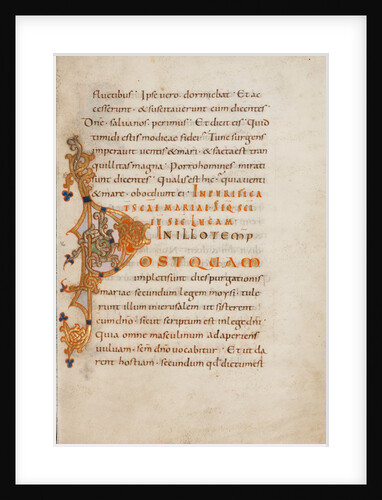 fluctibus. Ipse vero dormiebat. Et ac
cesserunt. & suscitaverunt eum dicentes
Dne. salva nos perimus. Et dicit eis. Quid
timidi estis modicae fidei. Tunc surgens
imperavit ventis & mari. & facta est tran
quillitas magna. Porro homines mirati
sunt dicentes. Qualis est hic. quia venti
& mare oboediunt ei. IN PURIFICA
T SCAE MARIAE. SEQ SCI
EV SEC LUCAM
IN ILLO TEMP
POSTQUAM
impleti sunt dies purgationis
mariae secundum legem moysi. tule
runt illum in ierusalem ut sisterent
eum dno. sicut scriptum est in lege dni
quia omne masculinum adaperiens
vulvam. scm dno vocabitur. Et ut da
rent hostiam. secundum qd dictum est